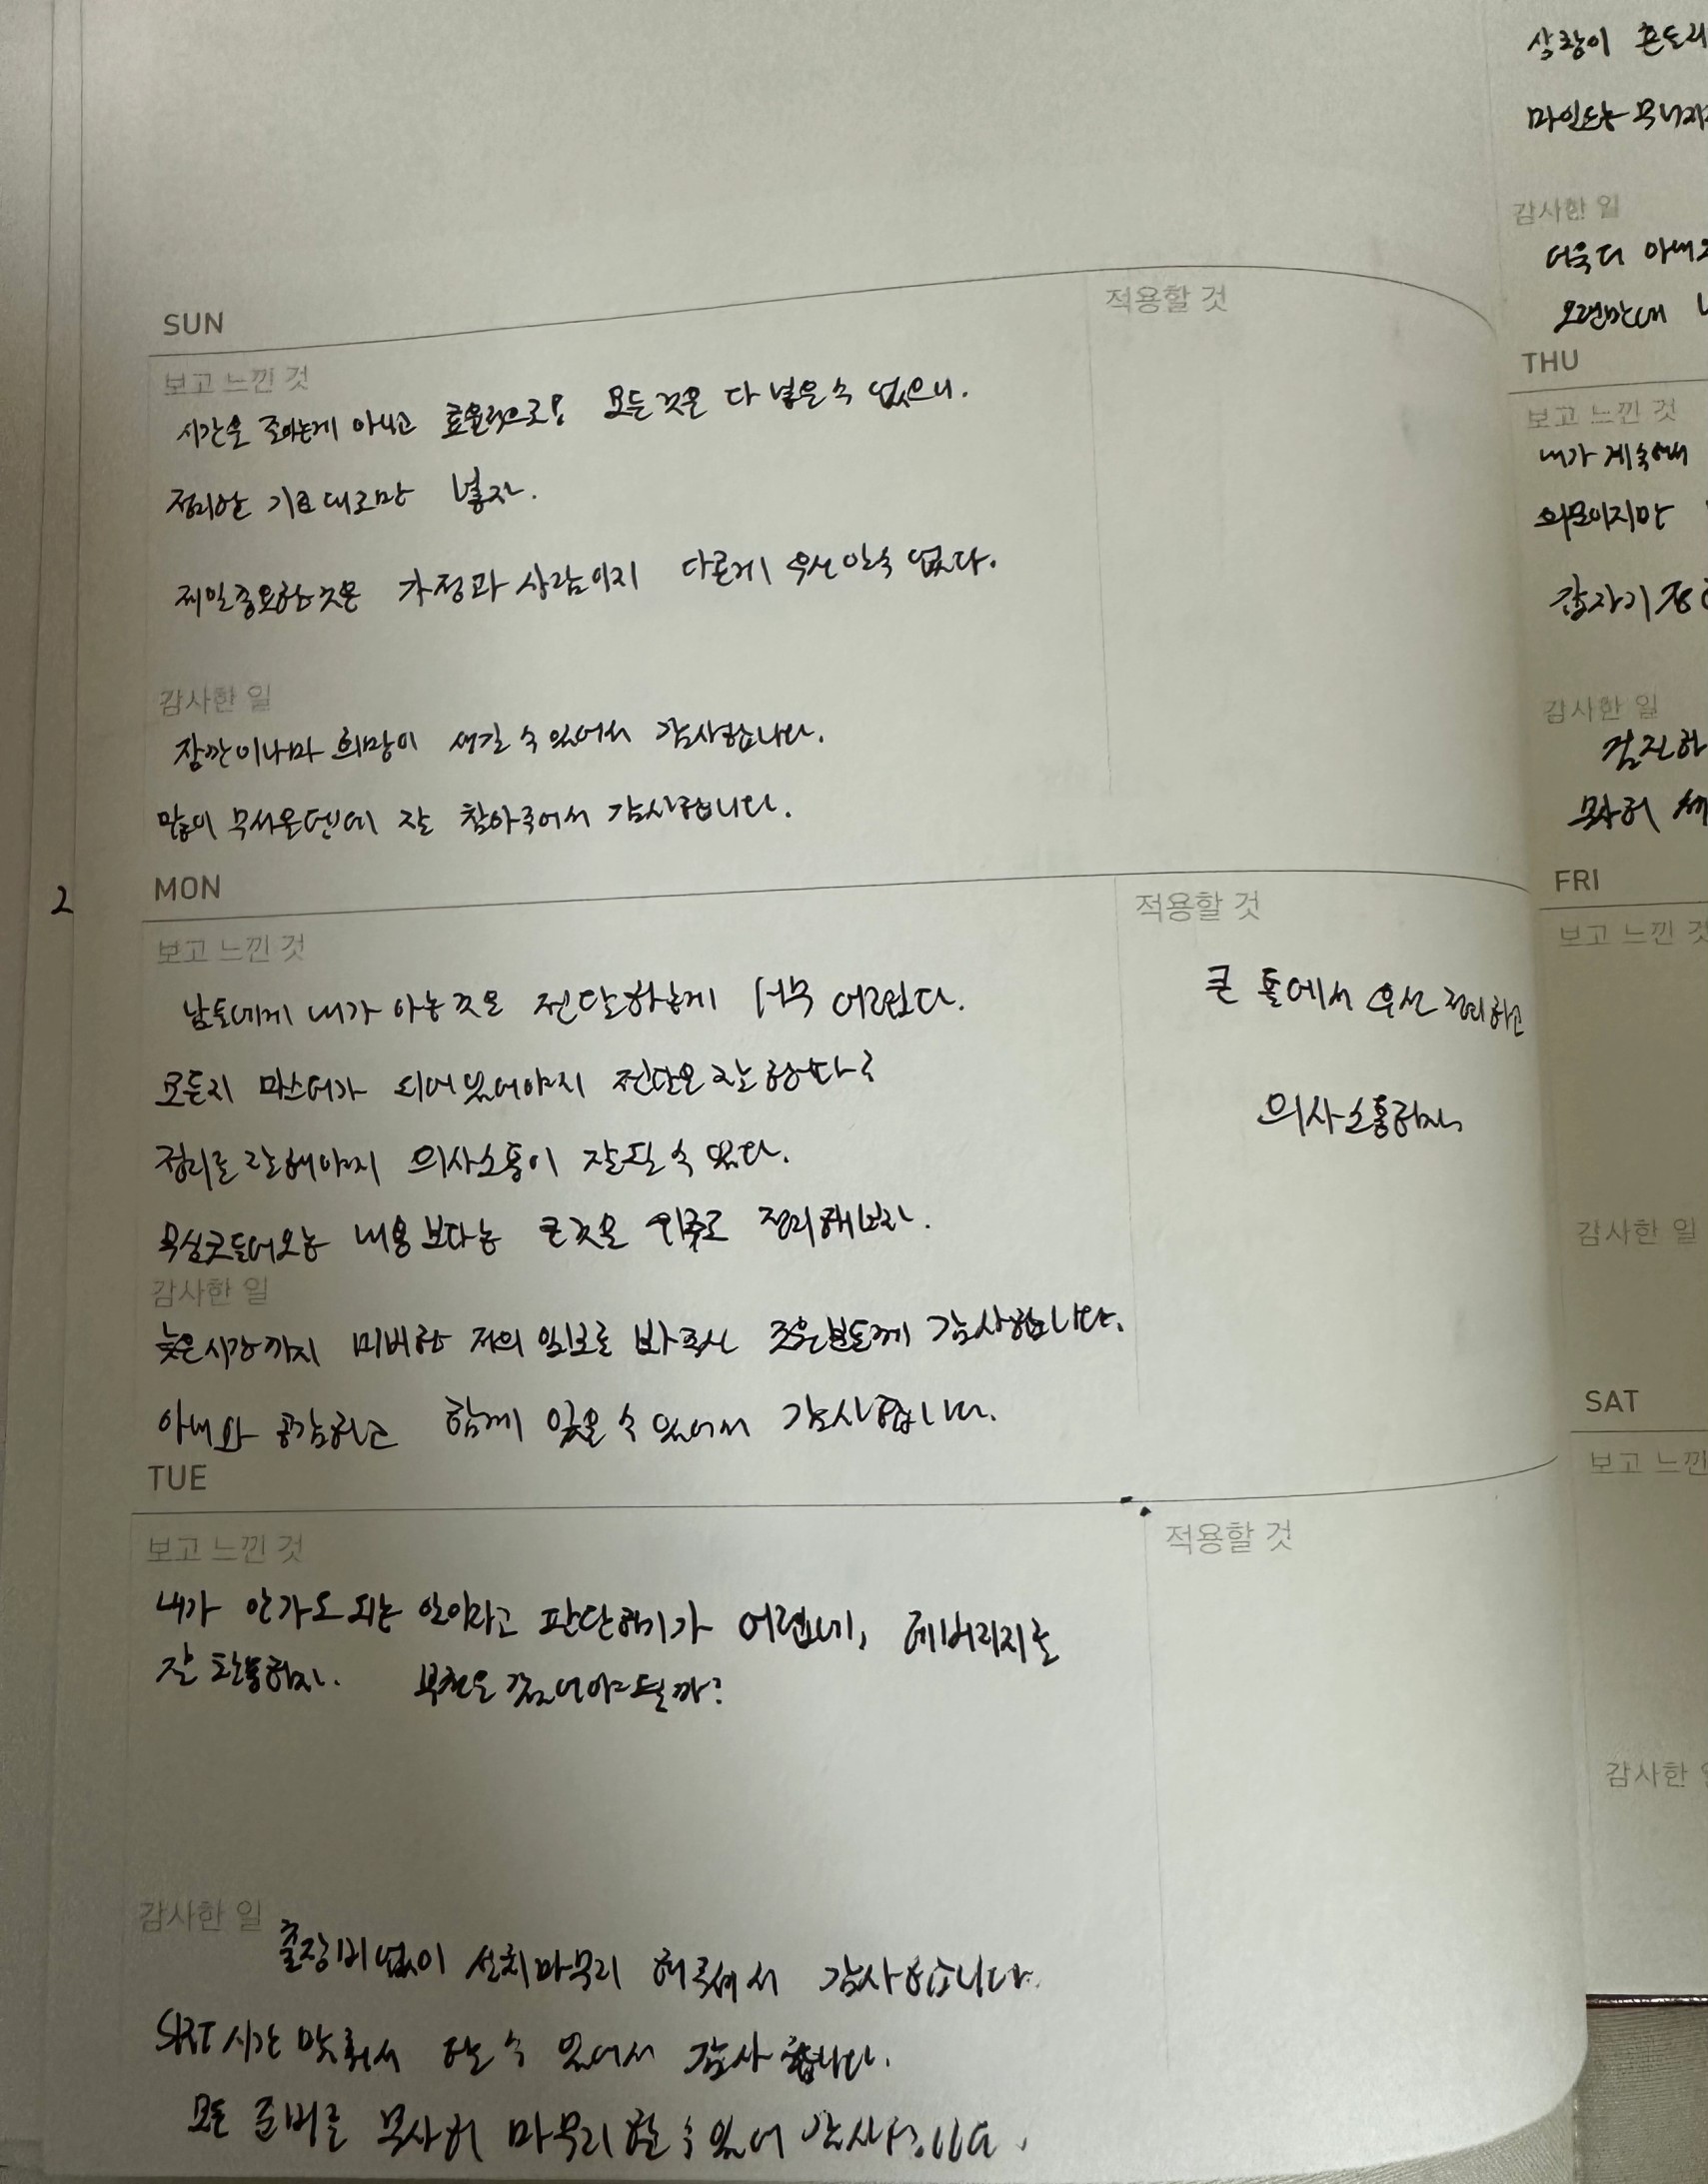 SUN
적용할 것
보고 느낀 것
시간을 쪼아는게 아니고 효율적으로! 모든것은 다 넣을 수 없으니.
정리한 기료대로만 넣자.
제일중요한것은 가정과 사람이지 다른게 우선일수 없다.
감사한 일
잠깐이나마 희망이 생길 수 있어서 감사합니다.
많이 무서울텐데 잘 참아주어서 감사합니다.
2
MON
적용할 것
보고 느낀 것
남들에게 내가 아는것을 전달하는게 너무 어렵다.
모든지 마스터가 되어있어야지 전달은 잘 한다?
정리를 잘해야지 의사소통이 잘될 수 있다.
무심코들어오는 내용보다는 큰것을 위주로 정리해보자.
큰 틀에서 우선 정리하고
의사소통하자
감사한 일
늦은시간까지 미비한 저의 일보를 봐주신 좋은분들께 감사합니다.
아내와 공감하고 함께 있을 수 있어서 감사합니다.
TUE
적용할 것
보고 느낀 것
내가 안가도 되는 일이라고 판단하기가 어렵네, 레버리지를
잘 활용하자. 부천은 갔어야될까?
감사한 일
출장비없이 설치마무리 해주셔서 감사합니다.
SRT시간 맞춰서 할 수 있어서 감사합니다.
모든 준비를 무사히 마무리할 수 있어 감사합니다.
상황이
마인드는
감사한 일
더욱더
오랜만에
THU
보고 느낀 것
내가 계속해서
의문이지만
갑자기
감사한 일
무사히
FRI
보고 느낀 것
감사한 일
SAT
보고 느낀
감사한